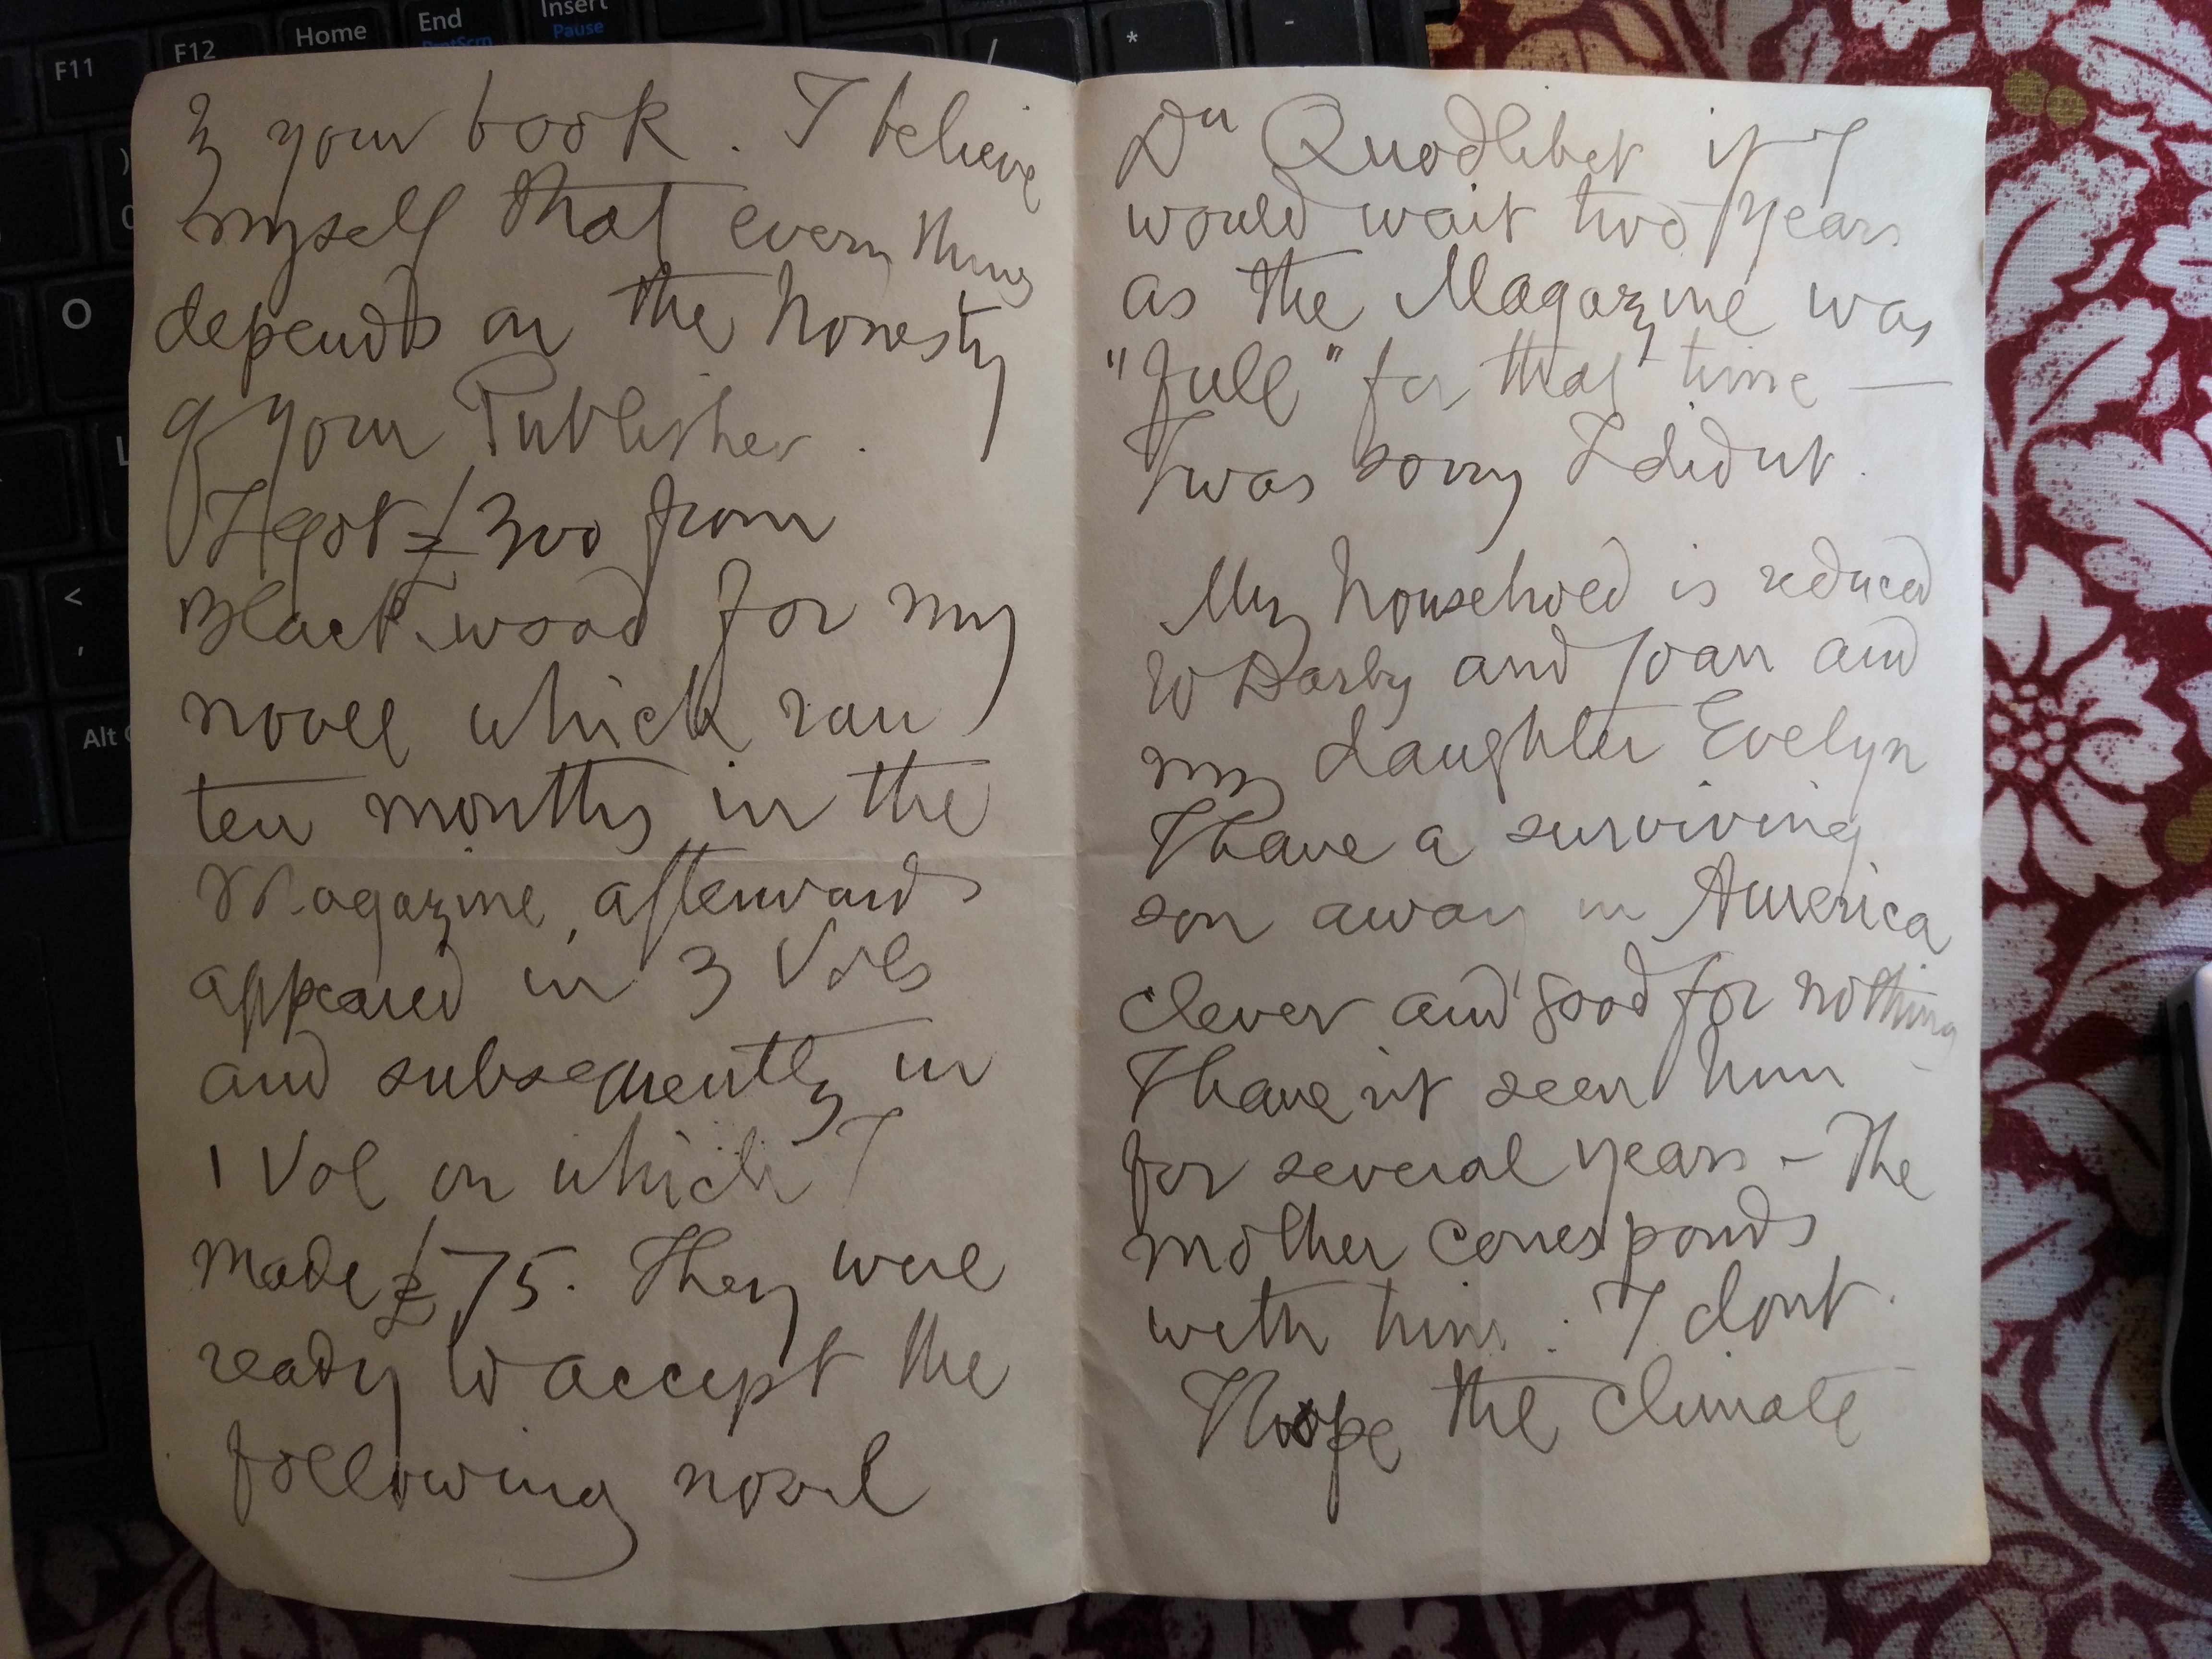 F11
F12
Home
End
PrntScrn
Insert
Pause
/
*
-
O
L
<
,
Alt
your book. I believe
myself that every thing
depends on the honesty
of your Publisher.
I got £300 from
Blackwood for my
novel which ran
ten months in the
Magazine, afterwards
appeared in 3 Vols
and subsequently in
1 Vol on which I
made £75. They were
ready to accept the
following novel
Quodlibet if I
would wait two years
as the Magazine was
"full" for that time —
I was sorry I didnt.
My household is reduced
to Darby and Joan and
my daughter Evelyn
I have a surviving
son away in America
clever and good for nothing
I have nt seen him
for several years - The
mother corresponds
with him : I dont.
I hope the climate